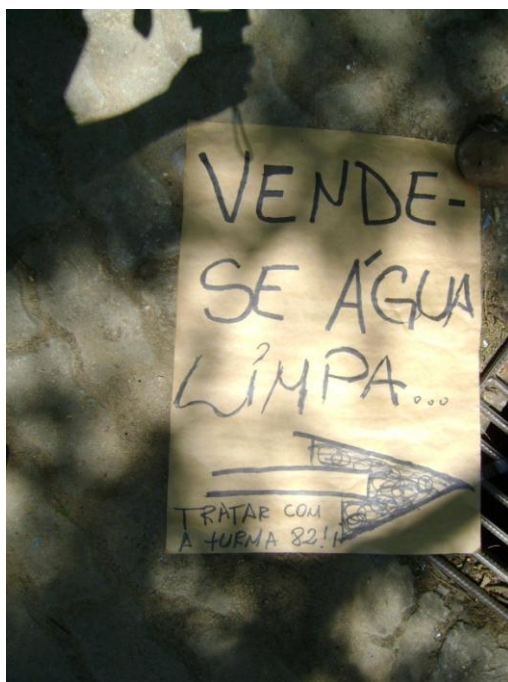 VENDE-
SE ÁGUA
LIMPA...
TRATAR COM
A TURMA 82!!